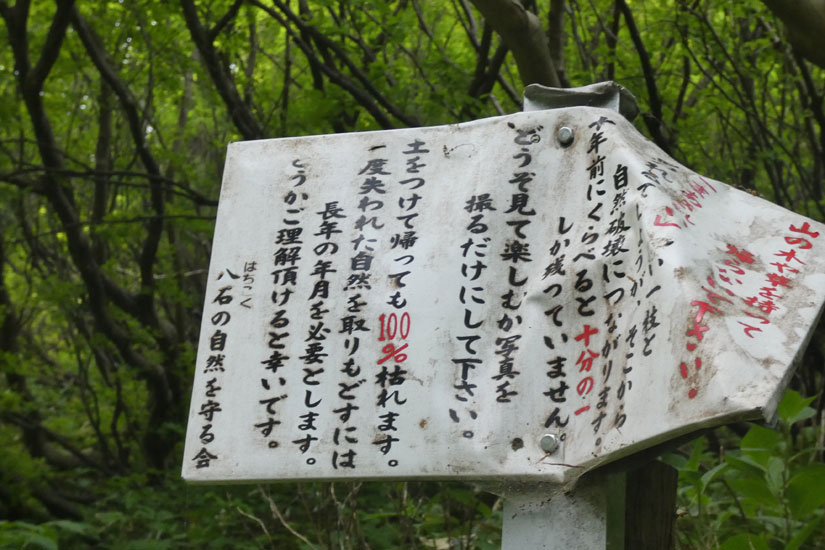 山の木や草を持って
下さい。
い一枝と
そこから
自然破壊につながります。
十年前にくらべると十分の一
しか残っていません。
どうぞ見て楽しむか写真を
撮るだけにして下さい。
土をつけて帰っても100%枯れます。
一度失われた自然を取りもどすには
長年の年月を必要とします。
どうかご理解頂けると幸いです。
はちこく
八石の自然を守る会